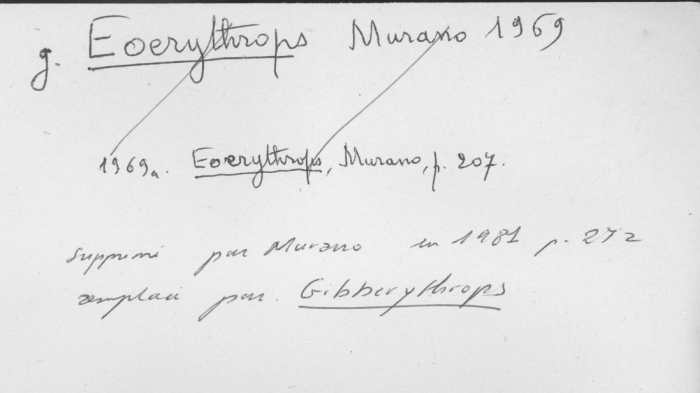 g. Eoerythrops Murano 1969
1969a. Eoerythrops, Murano, p. 207.
supprimé par Murano en 1981 p. 272
remplacé par. Gibberythrops